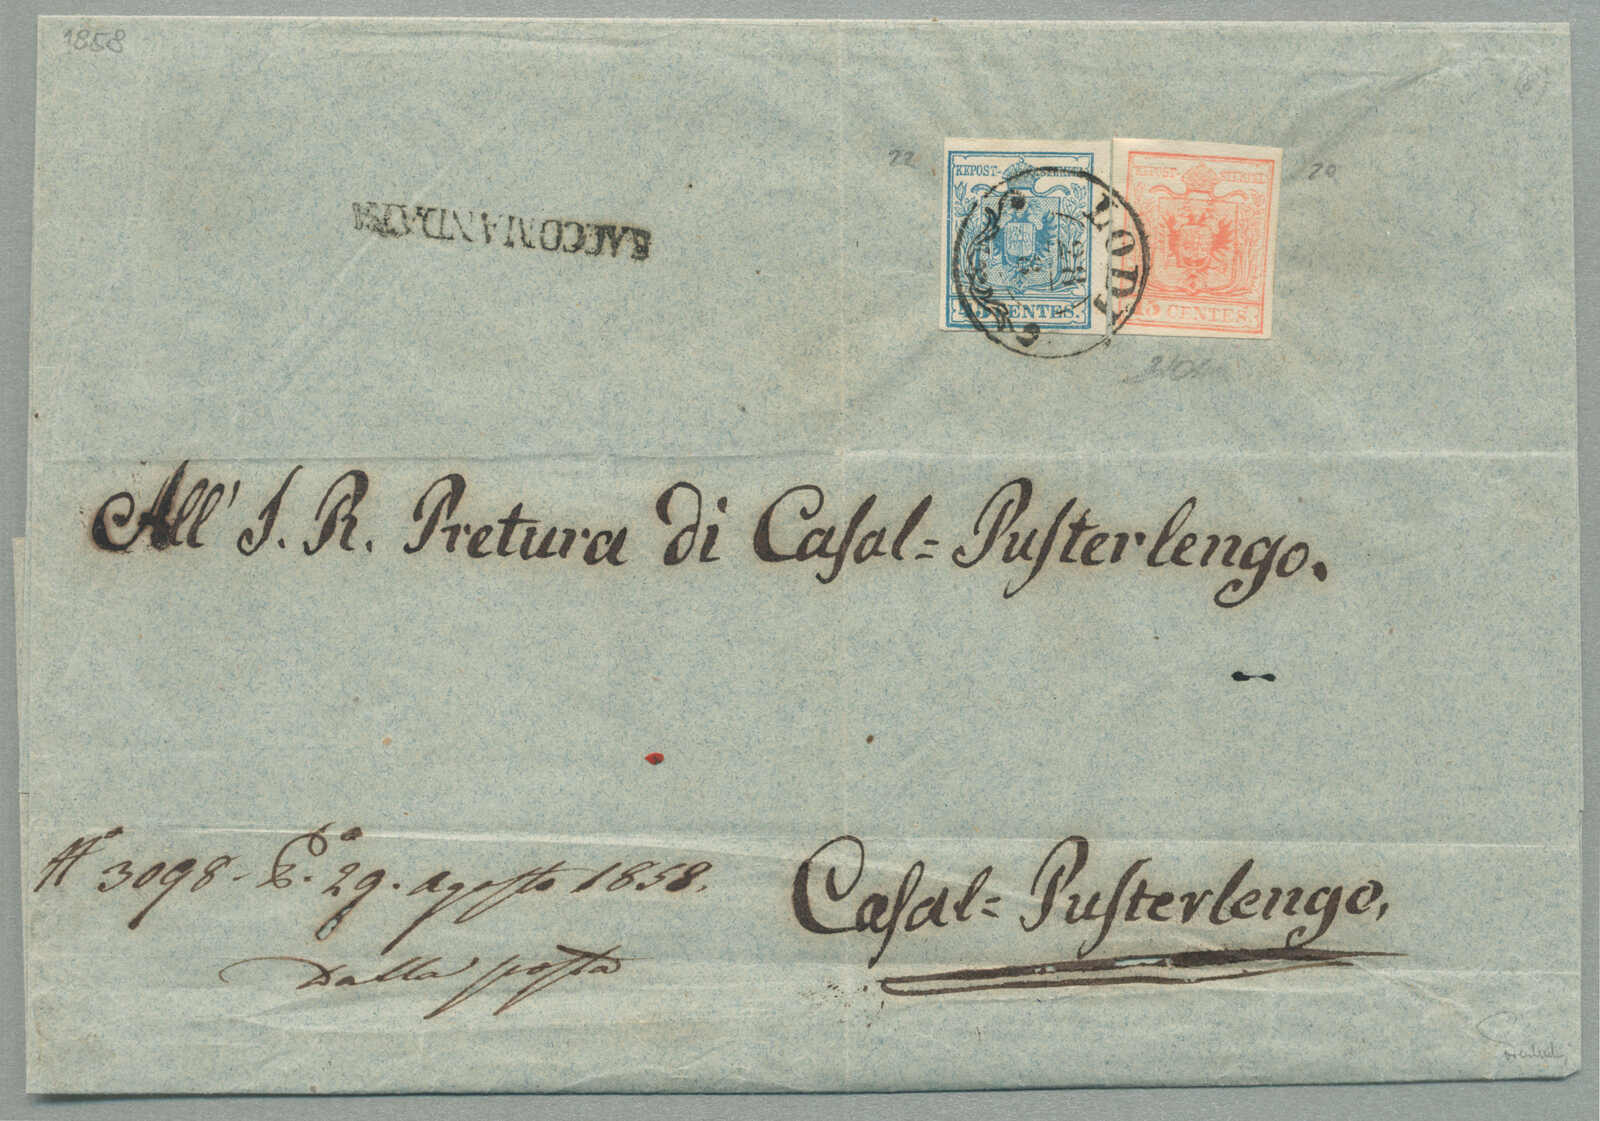 1858
RACCOMANDATA
22
20
KKPOST-STEMPEL
KKPOST-STEMPEL
LODI
45 CENTES.
15 CENTES.
All' I. R. Pretura di Caſal= Puſterlengo.
N° 3098. P.ª 29. agoſto 1858.
Dalla poſta
Caſal= Puſterlengo,